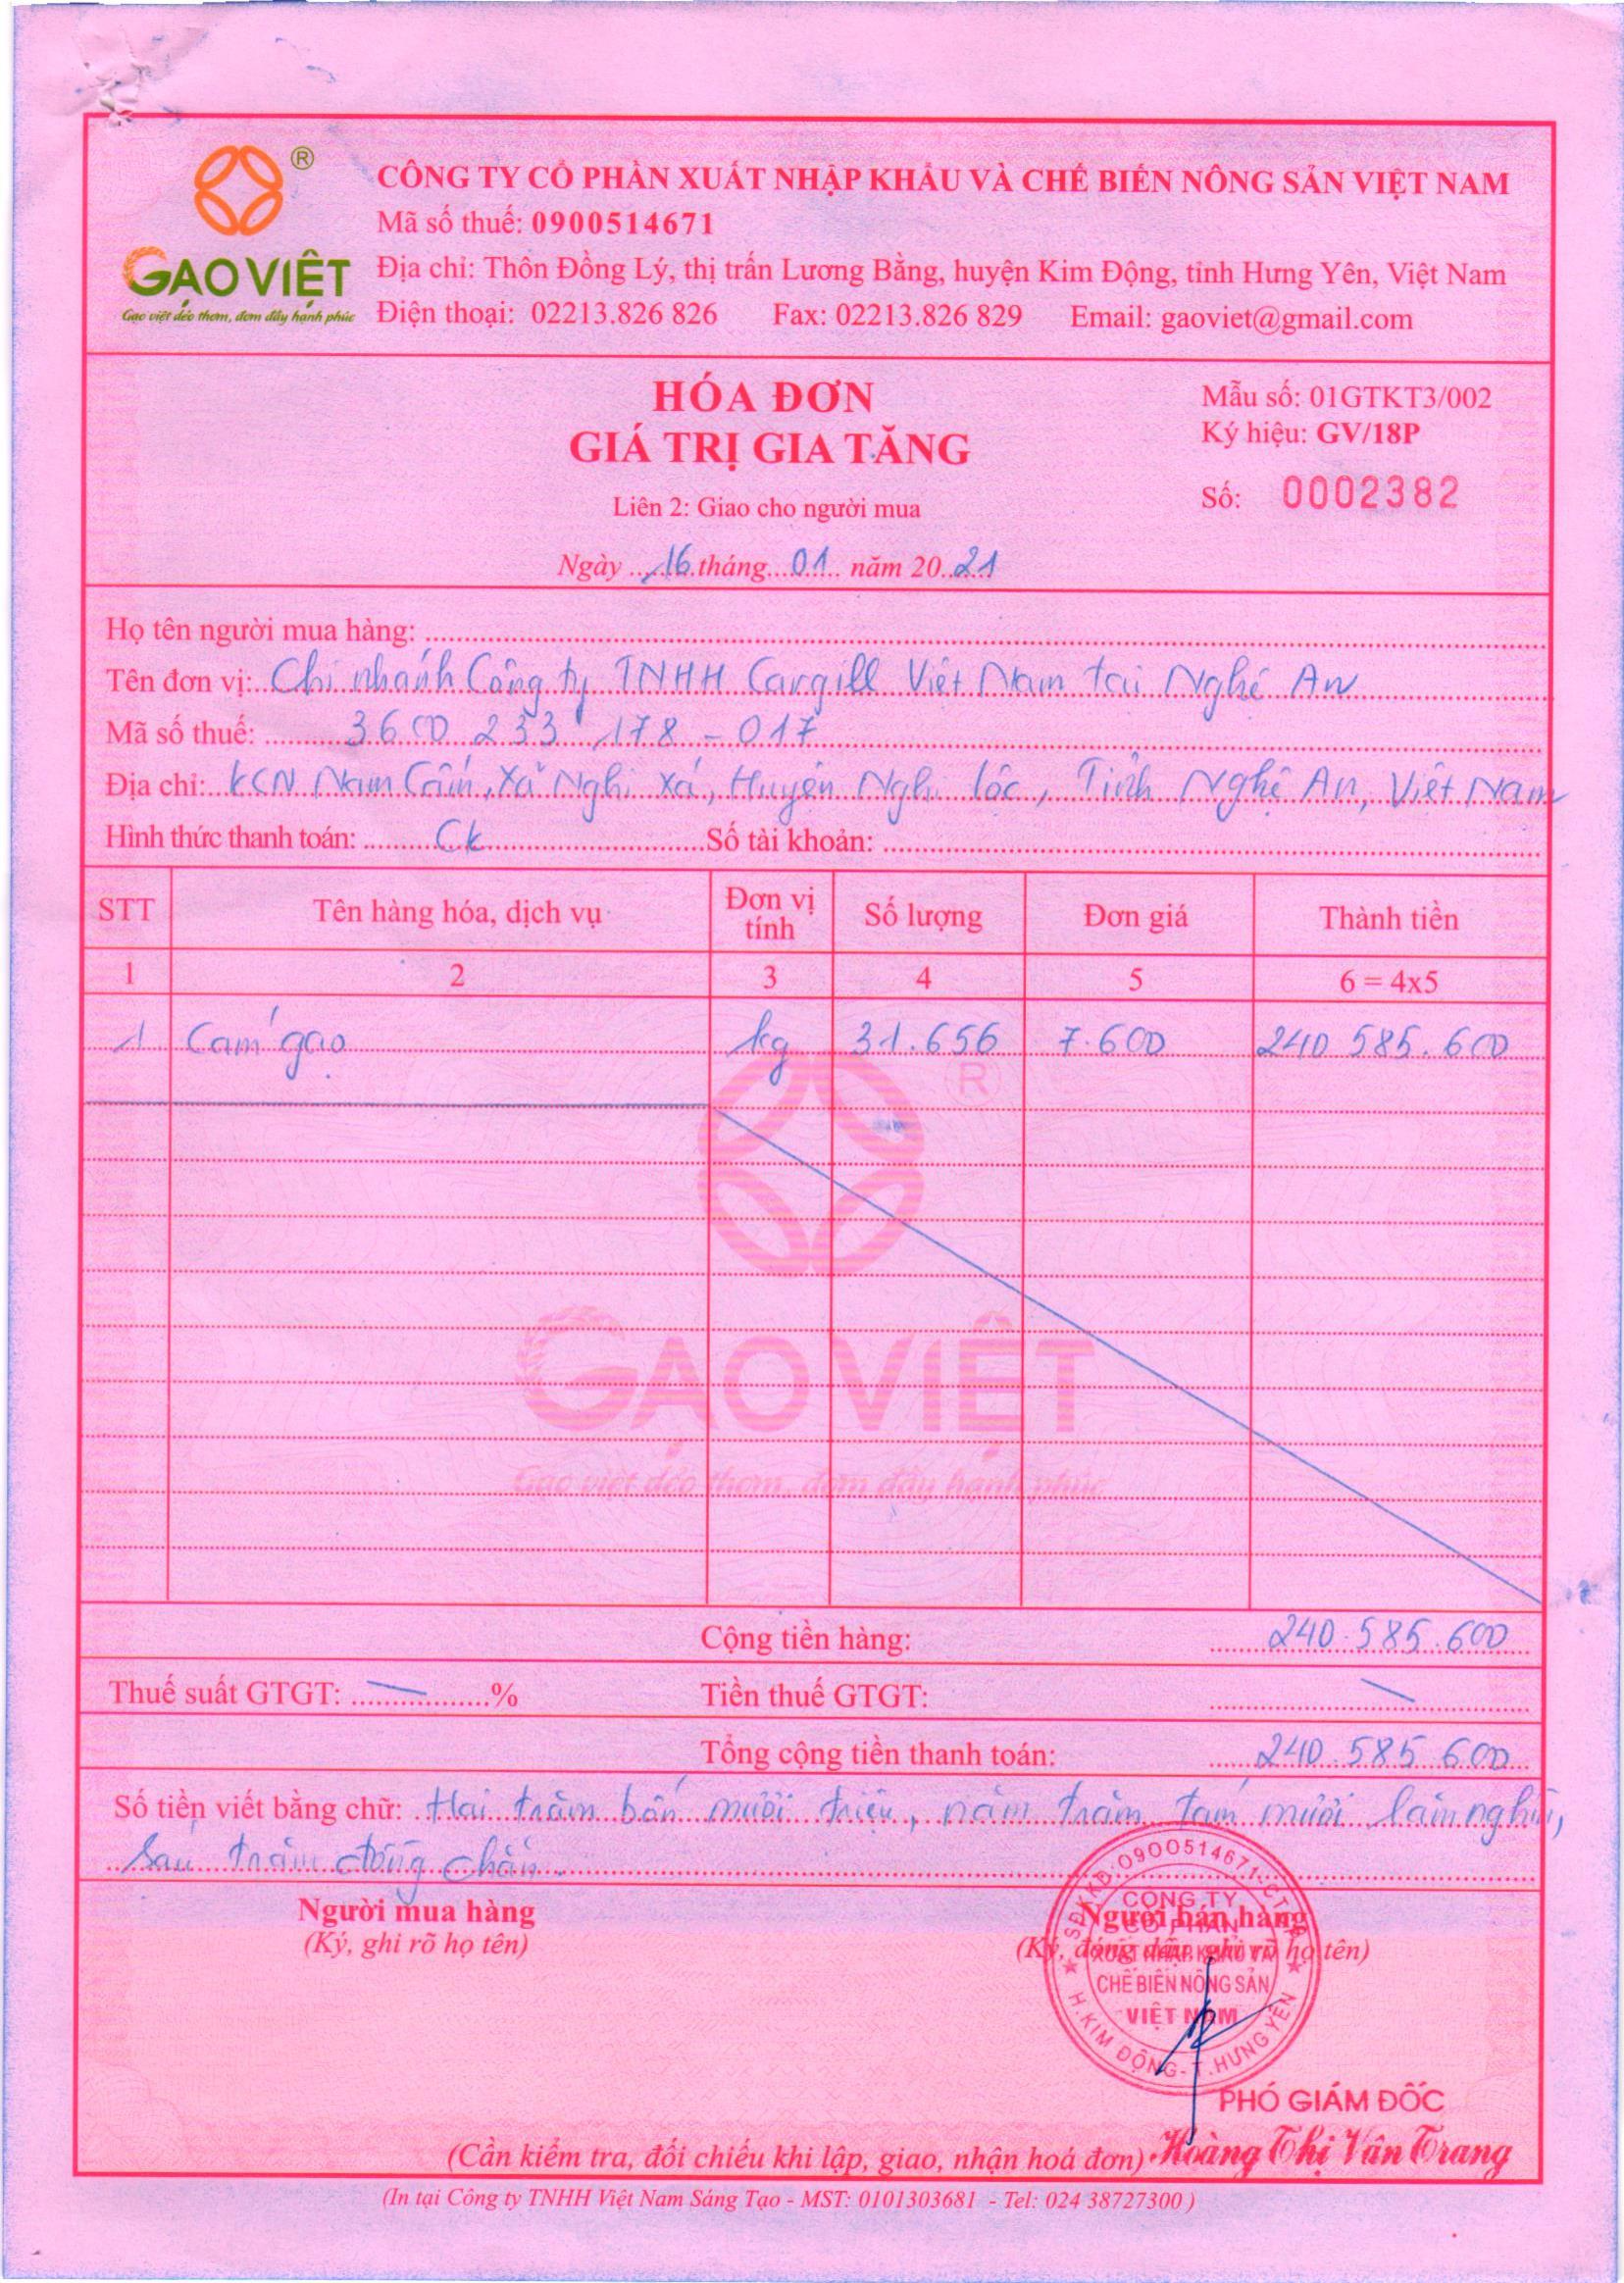 ®
GẠO VIỆT
Gạo việt dẻo thơm, đơm đầy hạnh phúc
CÔNG TY CỔ PHẦN XUẤT NHẬP KHẨU VÀ CHẾ BIẾN NÔNG SẢN VIỆT NAM
Mã số thuế: 0900514671
Địa chỉ: Thôn Đồng Lý, thị trấn Lương Bằng, huyện Kim Động, tỉnh Hưng Yên, Việt Nam
Điện thoại: 02213.826 826 Fax: 02213.826 829 Email: gaoviet@gmail.com
HÓA ĐƠN
GIÁ TRỊ GIA TĂNG
Liên 2: Giao cho người mua
Ngày 16 tháng 01 năm 2021
Mẫu số: 01GTKT3/002
Ký hiệu: GV/18P
Số: 0002382
Họ tên người mua hàng:
Tên đơn vị: Chi nhánh Công ty TNHH Cargill Việt Nam tại Nghệ An
Mã số thuế: 3600 233 178 - 017
Địa chỉ: KCN Nam Cấm, Xã Nghi Xá, Huyện Nghi Lộc, Tỉnh Nghệ An, Việt Nam
Hình thức thanh toán: Ck Số tài khoản:
STT Tên hàng hóa, dịch vụ Đơn vị tính Số lượng Đơn giá Thành tiền
1 2 3 4 5 6 = 4x5
1 Cám gạo kg 31.656 7.600 240 585.600
®
GẠO VIỆT
Gạo việt dẻo thơm, đơm đầy hạnh phúc
Cộng tiền hàng: 240.585.600
Thuế suất GTGT: — % Tiền thuế GTGT: —
Tổng cộng tiền thanh toán: 240.585.600
Số tiền viết bằng chữ: Hai trăm bốn mươi triệu, năm trăm tám mươi lăm nghìn,
sáu trăm đồng chẵn.
Người mua hàng
(Ký, ghi rõ họ tên)
Người bán hàng
(Ký, đóng dấu, ghi rõ họ tên)
SĐKKD: 0900514671-C.T.C.P
CÔNG TY
CỔ PHẦN
XUẤT NHẬP KHẨU VÀ
CHẾ BIẾN NÔNG SẢN
VIỆT NAM
H. KIM ĐỘNG - T. HƯNG YÊN
PHÓ GIÁM ĐỐC
Hoàng Thị Vân Trang
(Cần kiểm tra, đối chiếu khi lập, giao, nhận hoá đơn)
(In tại Công ty TNHH Việt Nam Sáng Tạo - MST: 0101303681 - Tel: 024 38727300 )